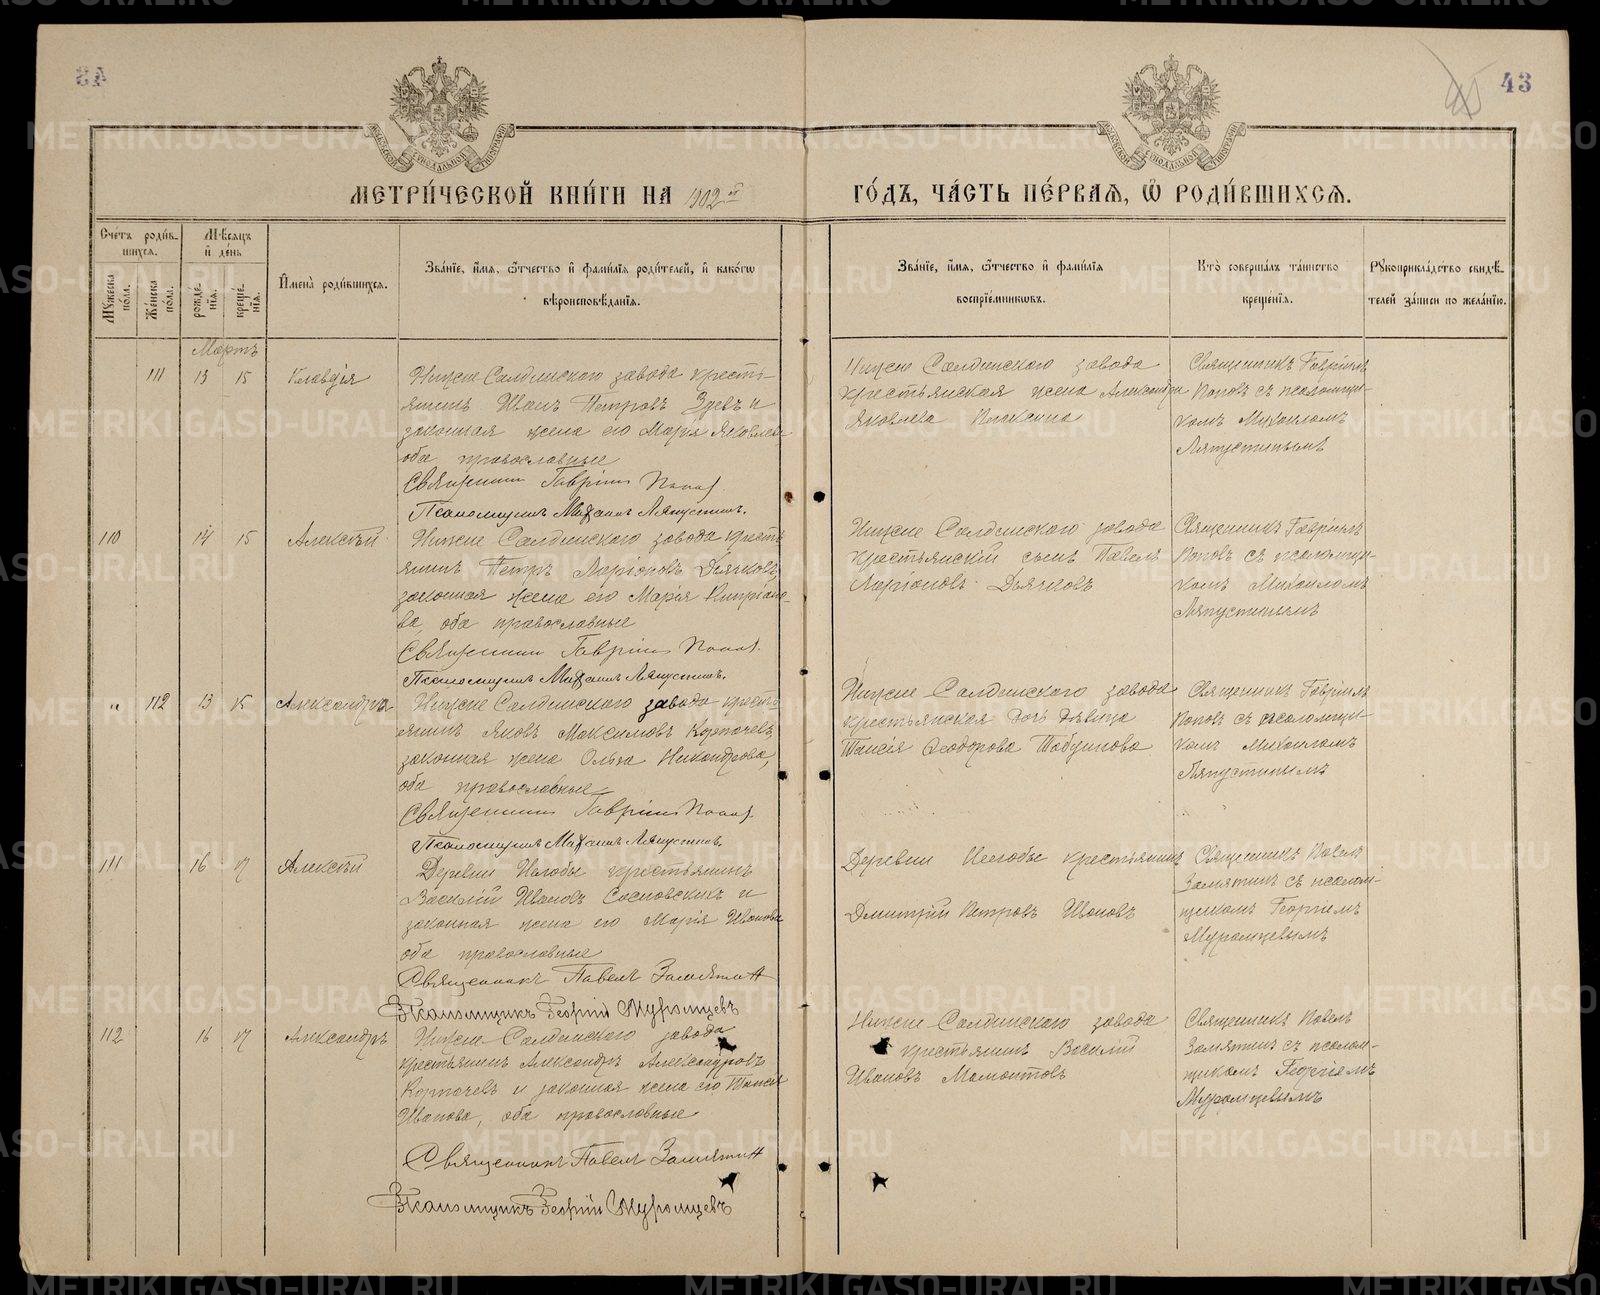 43
МЕТРИ́ЧЕСКОЙ КНИ́ГИ НА 1902 й ГО́ДЪ, ЧА́СТЬ ПЕ́РВАѦ, Ѡ҆ РОДИ́ВШИХСѦ.
Сче́тъ роди́в-
шихсѧ.
Мꙋ́жеска по́ла.
Же́нска по́ла.
Мѣ́сѧцъ
и҆ де́нь
рожде́-
нїѧ.
креще́-
нїѧ.
И҆мена̀ роди́вшихсѧ.
Зва́нїе, и҆́мѧ, ѻ҆́тчество и҆ фами́лїѧ роди́телей, и҆ како́гѡ
вѣроисповѣ́данїѧ.
Зва́нїе, и҆́мѧ, ѻ҆́тчество и҆ фами́лїѧ
воспрїе́мникѡвъ.
Кто̀ соверша́лъ та́инство
креще́нїѧ.
Рꙋкоприкла́дство свидѣ́-
телей за́писи по жела́нїю.
Мартъ
111 13 15 Клавдія
Нижне Салдинскаго завода кресть-
янинъ Иванъ Петровъ Зуевъ и
законная жена его Марія Яковлева
оба православные
Священникъ Гавріилъ Поповъ
Псаломщикъ Михаилъ Ляпустинъ.
Нижне Салдинскаго завода
крестьянская жена Александра
Яковлева
Священникъ Гавріилъ
Поповъ съ псаломщи-
комъ Михаиломъ
Ляпустинымъ
110 14 15 Алексѣй
Нижне Салдинскаго завода кресть
янинъ Петръ Ларіоновъ Дьячковъ,
законная жена его Марія Кипріано-
ва, оба православные
Священникъ Гавріилъ Поповъ
Псаломщикъ Михаилъ Ляпустинъ.
Нижне Салдинскаго завода
крестьянскій сынъ Павелъ
Ларіоновъ Дьячковъ
Священникъ Гавріилъ
Поповъ съ псаломщи-
комъ Михаиломъ
Ляпустинымъ
" 112 13 15 Александра
Нижне Салдинскаго завода кресть
янинъ Яковъ Максимовъ Корточевъ,
законная жена Ольга Никандрова,
оба православные
Священникъ Гавріилъ Поповъ
Псаломщикъ Михаилъ Ляпустинъ.
Нижне Салдинскаго завода
крестьянская дочь дѣвица
Таисія Ѳеодорова
Священникъ Гавріилъ
Поповъ съ псаломщи-
комъ Михаиломъ
Ляпустинымъ
111 16 17 Алексѣй
Деревни крестьянинъ
Василій Ивановъ Сосновскихъ и
законная жена его Марія Иванова
оба православные
Священникъ Павелъ Замятин
Псаломщикъ Георгій Муромцевъ
Деревни крестьянинъ
Дмитрій Петровъ Ивановъ
Священникъ Павелъ
Замятинъ съ псалом-
щикомъ Георгіемъ
Муромцевымъ
112 16 17 Александръ
Нижне Салдинскаго завода
крестьянинъ Александръ Александровъ
Корточевъ и законная жена его Таисія
Иванова, оба православные
Священникъ Павелъ Замятин
Псаломщикъ Георгій Муромцевъ
Нижне Салдинскаго завода
крестьянинъ Василій
Ивановъ Мамонтовъ
Священникъ Павелъ
Замятинъ съ псалом-
щикомъ Георгіемъ
Муромцевымъ
METRIKI.GASO-URAL.RU